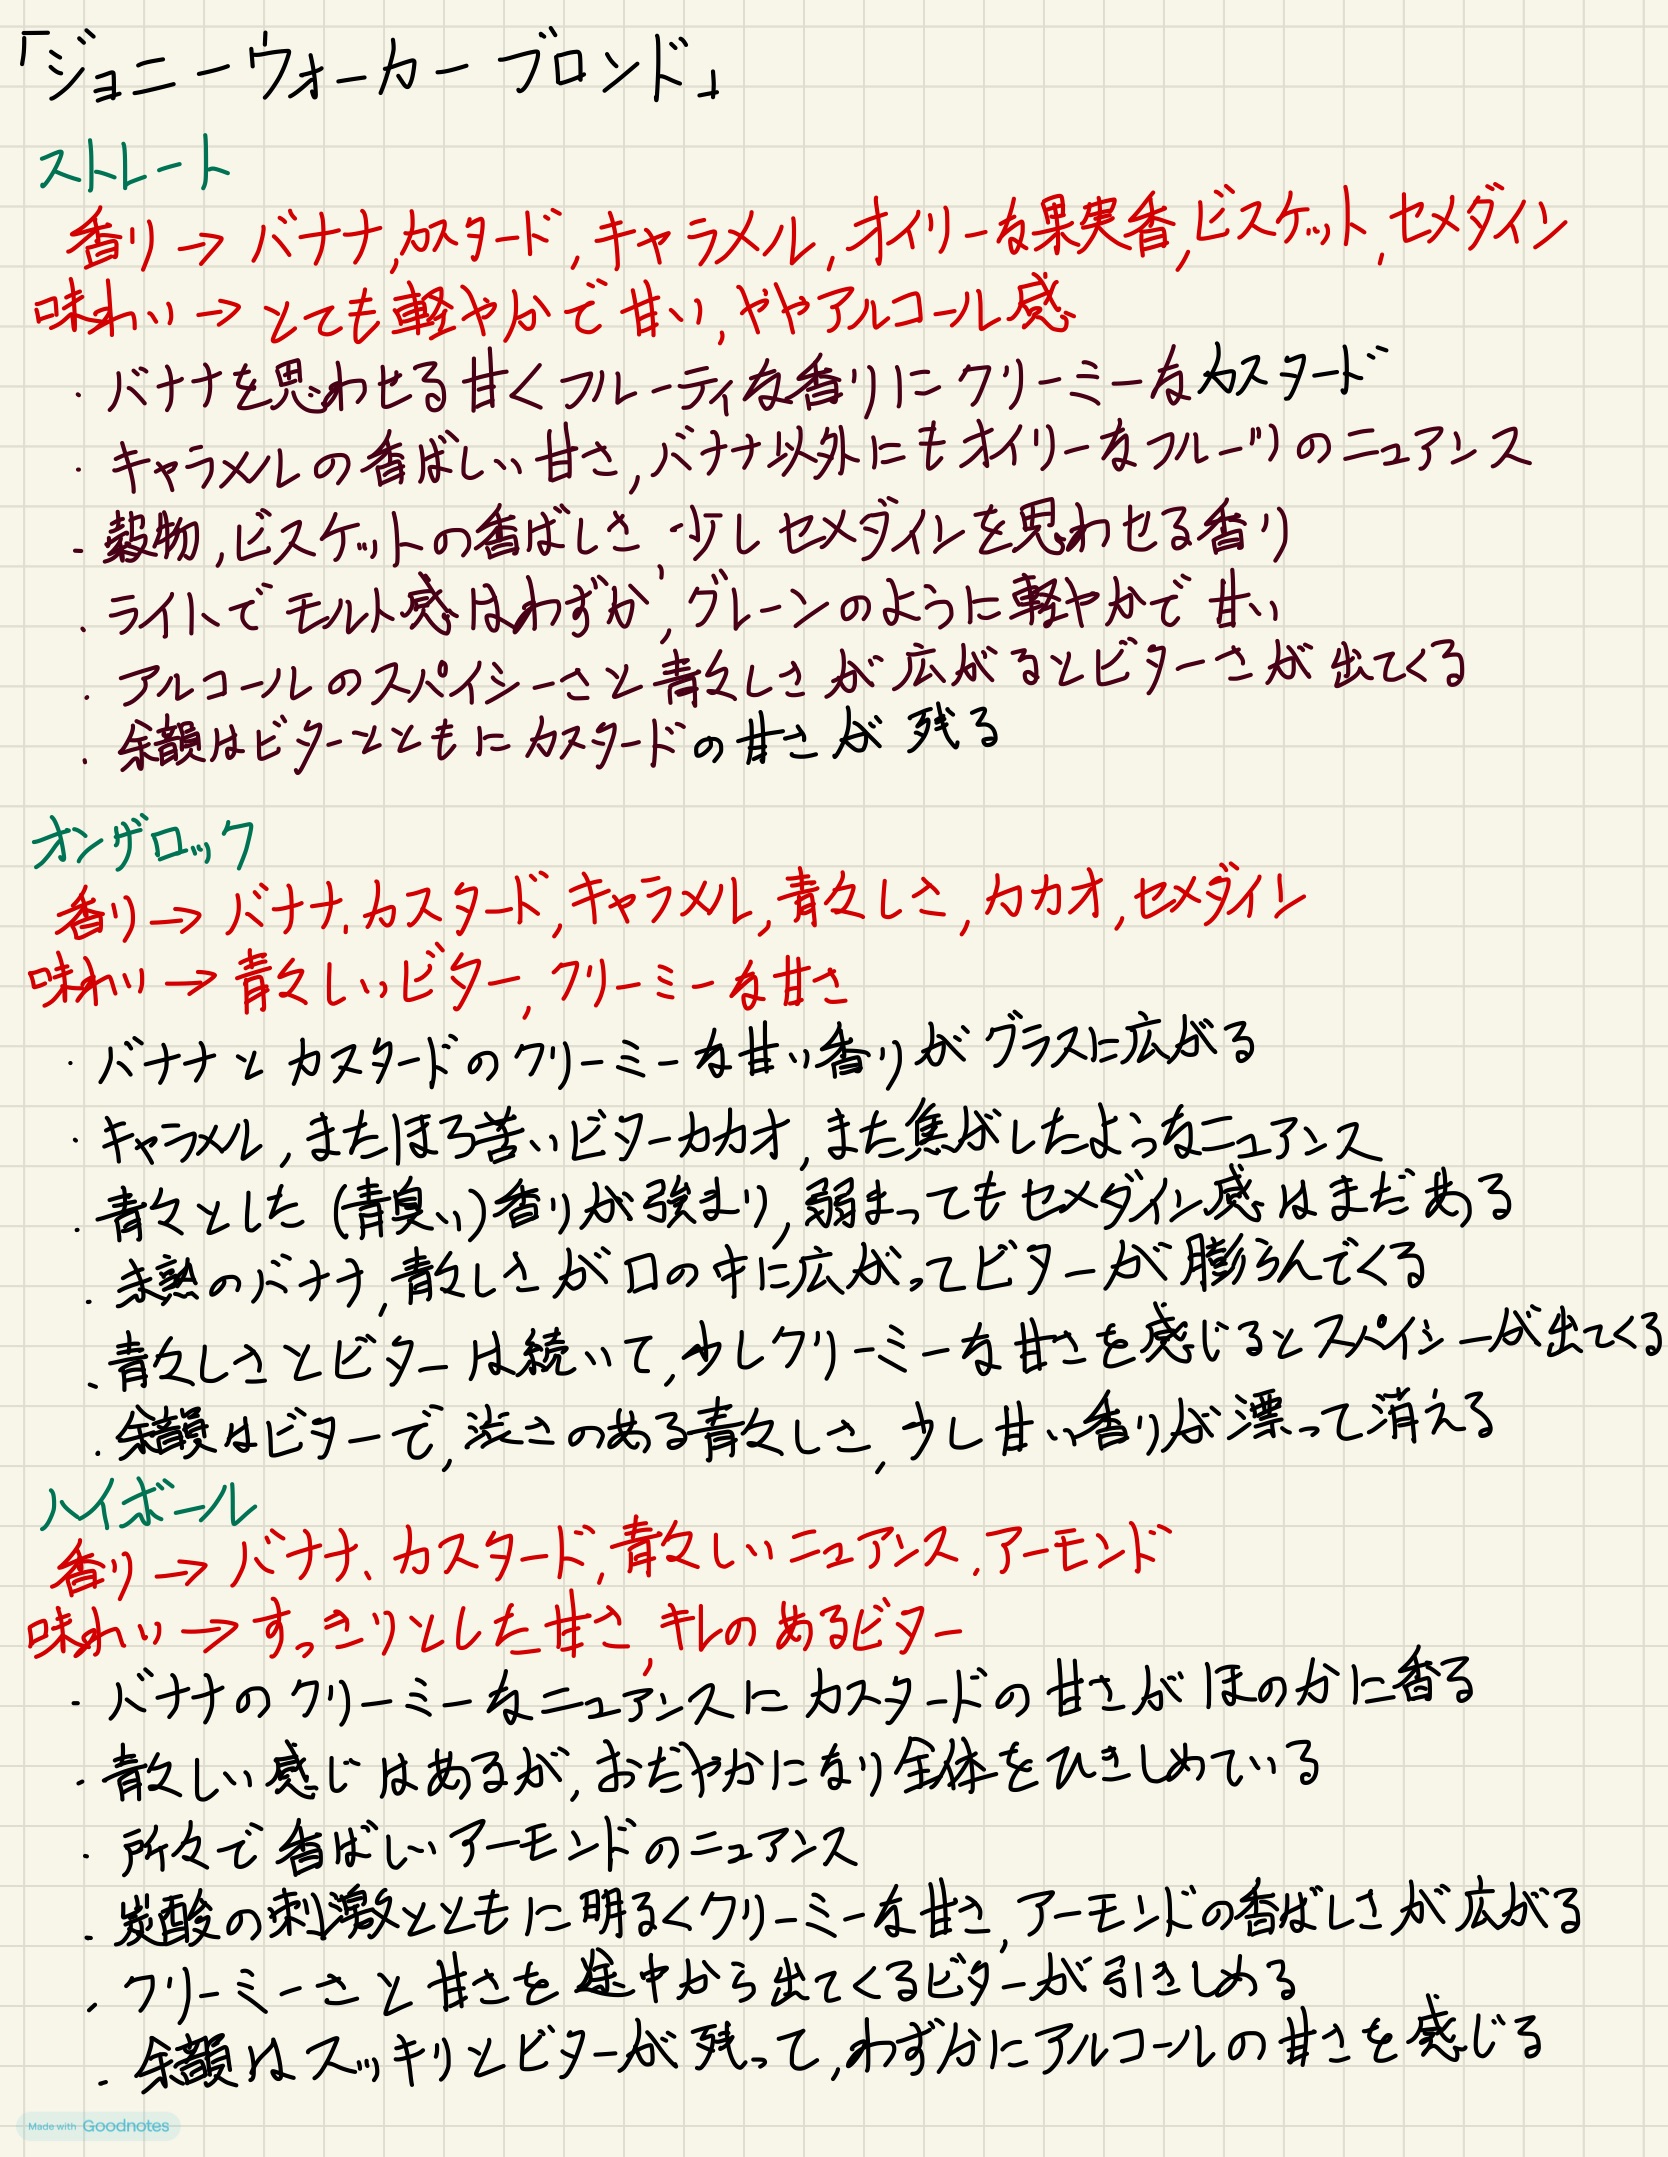 「ジョニーウォーカー ブロンド」
ストレート
香り→バナナ,カスタード,キャラメル,オイリーな果実香,ビスケット,セメダイン
味わい→とても軽やかで甘い,ややアルコール感
・バナナを思わせる甘くフルーティな香りにクリーミーなカスタード
・キャラメルの香ばしい甘さ,バナナ以外にもオイリーなフルーツのニュアンス
・穀物,ビスケットの香ばしさ,少しセメダインを思わせる香り
・ライトでモルト感はわずか,グレーンのように軽やかで甘い
・アルコールのスパイシーさと青々しさが広がるとビターさが出てくる
・余韻はビターとともにカスタードの甘さが残る
オンザロック
香り→バナナ,カスタード,キャラメル,青々しさ,カカオ,セメダイン
味わい→青々しいビター,クリーミーな甘さ
・バナナとカスタードのクリーミーな甘い香りがグラスに広がる
・キャラメル,またほろ苦いビターカカオ,また焦がしたようなニュアンス
・青々とした(青臭い)香りが強まり,弱まってもセメダイン感はまだある
・未熟のバナナ,青々しさが口の中に広がってビターが膨らんでくる
・青々しさとビターは続いて,少しクリーミーな甘さを感じるとスパイシーが出てくる
・余韻はビターで,渋さのある青々しさ,少し甘い香りが漂って消える
ハイボール
香り→バナナ、カスタード,青々しいニュアンス,アーモンド
味わい→すっきりとした甘さ,キレのあるビター
・バナナのクリーミーなニュアンスにカスタードの甘さがほのかに香る
・青々しい感じはあるが,おだやかになり全体をひきしめている
・所々で香ばしいアーモンドのニュアンス
・炭酸の刺激とともに明るくクリーミーな甘さ,アーモンドの香ばしさが広がる
・クリーミーさと甘さを途中から出てくるビターが引きしめる
・余韻はスッキリとビターが残って,わずかにアルコールの甘さを感じる
Made with Goodnotes